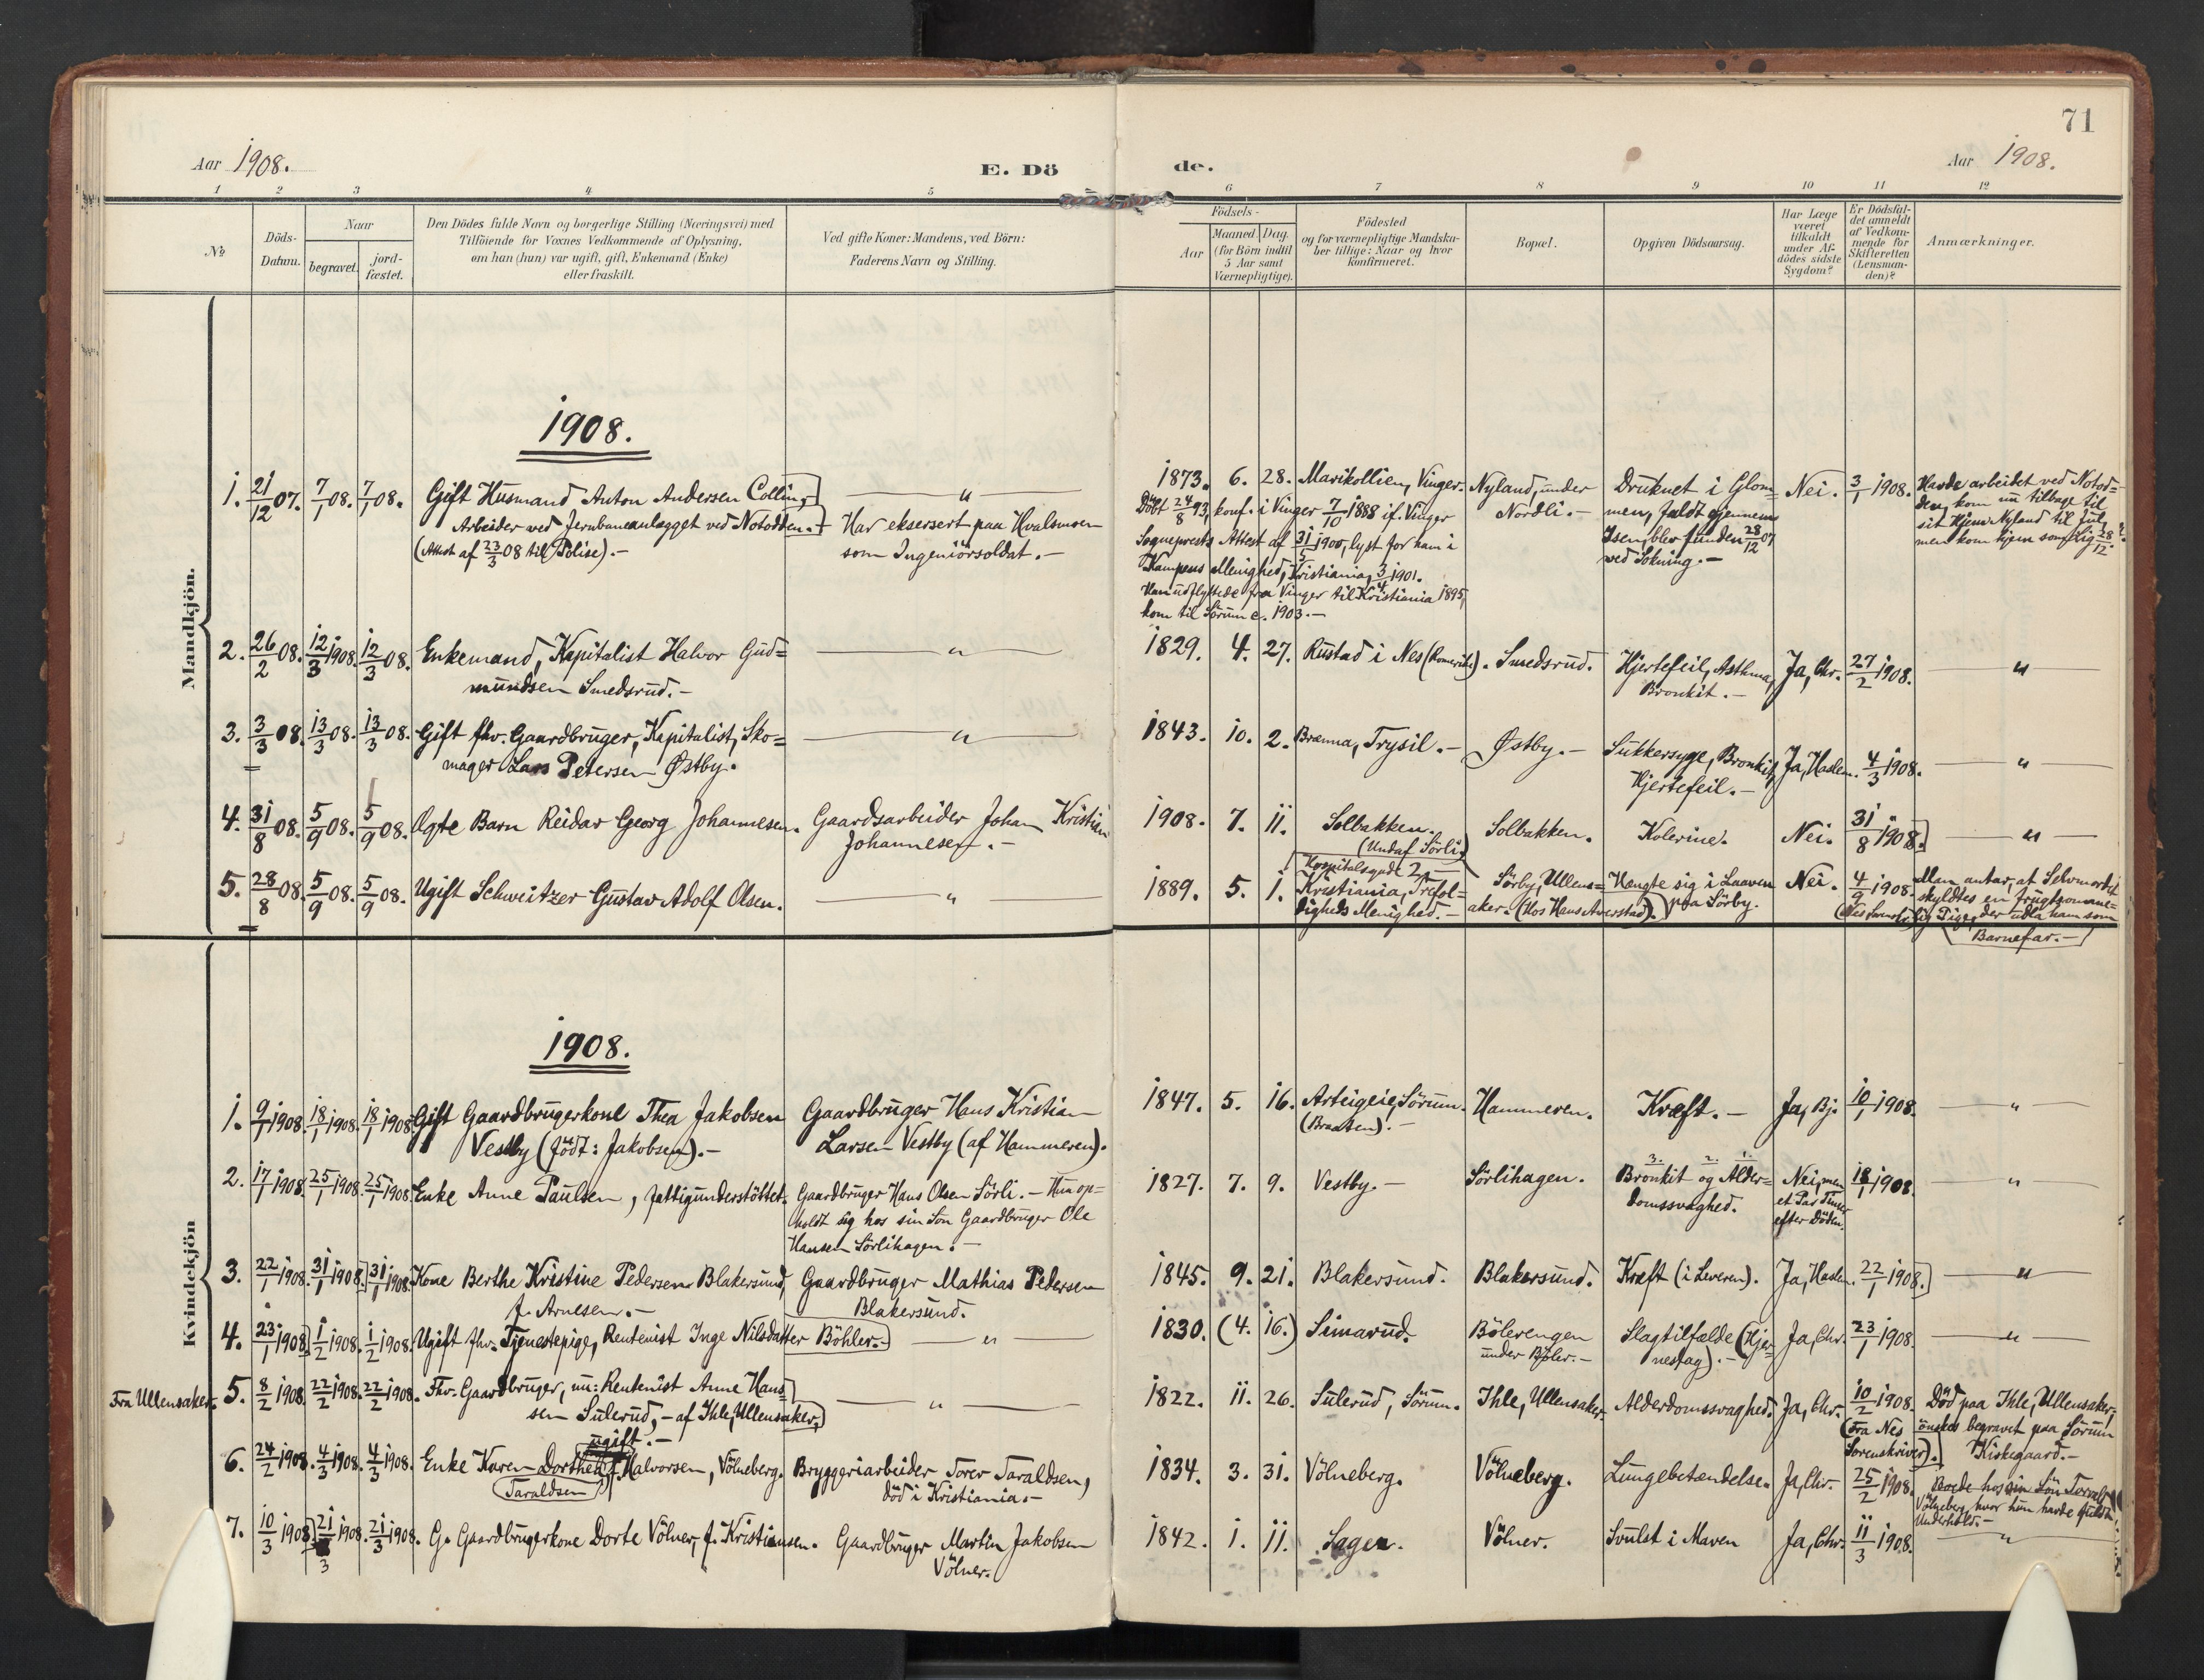 71
Aar 1908.
E. Dö
de.
Aar 1908.
1 2 3 4 5 6 7 8 9 10 11 12
No
Döds-
Datum.
Naar
begravet.
jord-
fæstet.
Den Dödes fulde Navn og borgerlige Stilling (Næringsvei) med
Tilföiende for Voxnes Vedkommende af Oplysning,
om han (hun) var ugift, gift, Enkemand (Enke)
eller fraskilt.
Ved gifte Koner: Mandens, ved Börn:
Faderens Navn og Stilling.
Födsels-
Aar
Maaned. Dag.
(for Börn indtil
5 Aar samt
Værnepligtige).
Födested
og for værnepligtige Mandska-
ber tillige: Naar og hvor
konfirmeret.
Bopæl.
Opgiven Dödsaarsag.
Har Læge
været
tilkaldt
under Af-
dödes sidste
Sygdom?
Er Dödsfal-
det anmeldt
af Vedkom-
mende for
Skifteretten
(Lensman-
den)?
Anmærkninger.
Mandkjön.
1908.
1. 21/12 07. 7/1 08. 7/1 08. Gift Husmand Anton Andersen Colling,
Arbeider ved Jernbaneanlægget ved Notodden.-
(Attest af 23/3 08 til Polise).-
— " —
Har eksersert paa Hvalsmoen
som Ingeniörsoldat.-
1873. 6. 28. Marikollien, Vinger.
Döbt 24/8 73, konf. i Vinger 7/10 1888 if. Vinger
Sogneprests Attest af 31/5 1900, lyst for ham i
Kampens Menighed, Kristiania 3/4 1901.
Han udflyttede fra Vinger til Kristiania 1895,
kom til Sörum c. 1903.-
Nyland, under
Nordli.-
Druknet i Glom=
men, faldt gjennem
Isen, blev funden 28/12 07
ved Sokning.-
Nei. 3/1 1908.
Havde arbeidet ved Notod=
den, kom nu tilbage til
sit Hjem Nyland til Jul,
men kom hjem som Lig 28/12.
2. 26/2 08. 12/3 1908. 12/3 08. Enkemand, Kapitalist Halvor Gud=
mundsen Smedsrud.-
— " —
1829. 4. 27. Rustad i Nes (Romerike). Smedsrud. Hjertefeil, Asthma,
Bronkit.-
Ja, Chr. 27/2 1908. — " —
3. 3/3 08. 13/3 08. 13/3 08. Gift fhv. Gaardbruger, Kapitalist, Sko=
mager Lars Petersen Østby.
— " —
1843. 10. 2. Brænna, Trysil.- Østby.- Sukkersyge, Bronkit,
Hjertefeil.-
Ja, Haslem. 4/3 1908. — " —
4. 31/8 08. 5/9 08. 5/9 08. Ægte Barn Reidar Georg Johannesen. Gaardsarbeider Johan Kristian
Johannesen.-
1908. 7. 11. Solbakken.
(Und af Sörli)
Solbakken. Kolerine. Nei. 31/8 1908. — " —
5. 28/8 08. 5/9 08. 5/9 08. Ugift Schweitzer Gustav Adolf Olsen. — " —
1889. 5. 1. Hospitalsgade 2
Kristiania, Trefol=
digheds Menighed.-
Sörby, Ullens=
aker. (Hos Hans Averstad).
Hængte sig i Laaven
paa Sörby.
Nei. 4/9 1908.
Man antar, at Selvmordet
skyldtes en frugtsomme=
lig Pige, der udla ham som
Barnefar.-
Kvindekjön
1908.
1. 9/1 1908. 18/1 1908. 18/1 1908. Gift Gaardbrugerkone Thea Jakobsen
Vestby (födt: Jakobsen).-
Gaardbruger Hans Kristian
Larsen Vestby (af Hammeren).
1847. 5. 16. Arteigeie, Sörum.
(Braaten).-
Hammeren. Kræft.- Ja, Bj. 10/1 1908. — " —
2. 17/1 1908. 25/1 1908. 25/1 1908. Enke Anne Paulsen, fattigunderstöttet.
Gaardbruger Hans Olsen Sörli.- Hun op=
holdt sig hos sin Sön Gaardbruger Ole
Hansen Sörlihagen.-
1827. 7. 9. Vestby.- Sörlihagen.
3. 2. 1.
Bronkit og Alder=
domssvaghed.
Nei, men
et Par Timer
efter Döden.
18/1 1908. — " —
3. 22/1 1908. 31/1 1908. 31/1 1908. Kone Berthe Kristine Pedersen Blakersund,
f. Arnesen.-
Gaardbruger Mathias Pedersen
Blakersund.
1845. 9. 21. Blakersund. Blakersund. Kræft (i Leveren). Ja, Haslem. 22/1 1908. — " —
4. 23/1 1908. 1/2 1908. 1/2 1908. Ugift fhv. Tjenestepige, Rentenist Inge Nilsdatter Böhler.- — " —
1830. (4. 16.) Simarud. Bölerengen
under Böler.-
Slagtilfælde (Hjer=
neslag).-
Ja, Chr. 23/1 1908. — " —
Fra Ullensaker. 5. 8/2 1908. 22/2 1908. 22/2 1908. Fhv. Gaardbruger, nu: Rentenist Anne Han=
sen Sulerud,- af Ihle, Ullensaker,
ugift.-
— " —
1822. 11. 26. Sulerud, Sörum. Ihle, Ullensaker. Alderdomssvaghed. Ja, Chr. 10/2 1908.
(Fra Nes
Sorenskriver).
Död paa Ihle, Ullensaker,
önsket begravet paa Sörum
Kirkegaard.-
6. 24/2 1908. 4/3 1908. 4/3 1908. Enke Karen Dorthea f. Halvorsen, Völneberg.
Taraldsen
Bryggeriarbeider Torer Taraldsen,
död i Kristiania.-
1834. 3. 31. Völneberg. Völneberg. Lungebetændelse. Ja, Chr. 25/2 1908.
Boede hos sin Sön
Völneberg, hvor hun havde fuldt
Underhold.-
7. 10/3 1908. 21/3 1908. 21/3 1908. G. Gaardbrugerkone Dorte Völner, f. Kristiansen. Gaardbruger Martin Jakobsen
Völner.
1842. 1. 11. Sagen. Völner. Svulst i Maven Ja, Chr. 11/3 1908. — " —